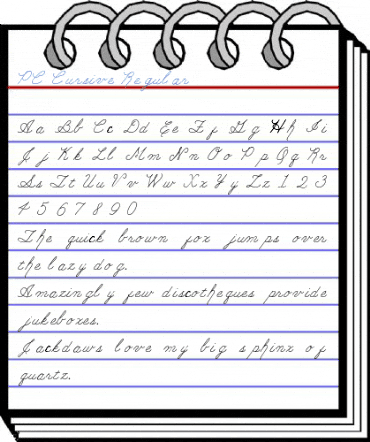 PC Cursive Regular
Aa Bb Cc Dd Ee Ff Gg Hh Ii
Jj Kk Ll Mm Nn Oo Pp Qq Rr
Ss Tt Uu Vv Ww Xx Yy Zz 1 2 3
4 5 6 7 8 9 0
The quick brown fox jumps over
the lazy dog.
Amazingly few discotheques provide
jukeboxes.
Jackdaws love my big sphinx of
quartz.